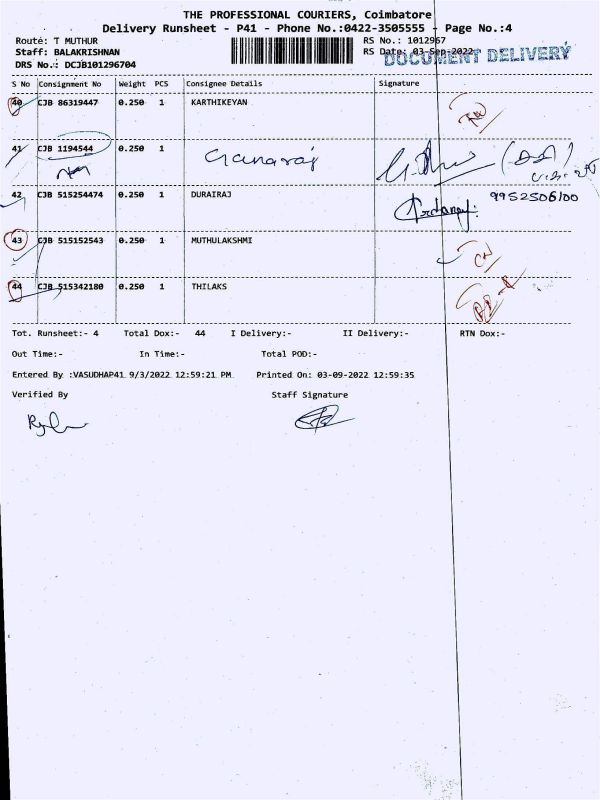 THE PROFESSIONAL COURIERS, Coimbatore
Delivery Runsheet - P41 - Phone No.:0422-3505555 - Page No.:4
Route: T MUTHUR RS No.: 1012967
Staff: BALAKRISHNAN RS Date: 03-Sep-2022
DOCUMENT DELIVERY
DRS No.: DCJB101296704
S No Consignment No Weight PCS Consignee Details Signature
40 CJB 86319447 0.250 1 KARTHIKEYAN
41 CJB 1194544 0.250 1
42 CJB 515254474 0.250 1 DURAIRAJ 9952506100
43 CJB 515152543 0.250 1 MUTHULAKSHMI
44 CJB 515342180 0.250 1 THILAKS
Tot. Runsheet:- 4 Total Dox:- 44 I Delivery:- II Delivery:- RTN Dox:-
Out Time:- In Time:- Total POD:-
Entered By :VASUDHAP41 9/3/2022 12:59:21 PM Printed On: 03-09-2022 12:59:35
Verified By Staff Signature